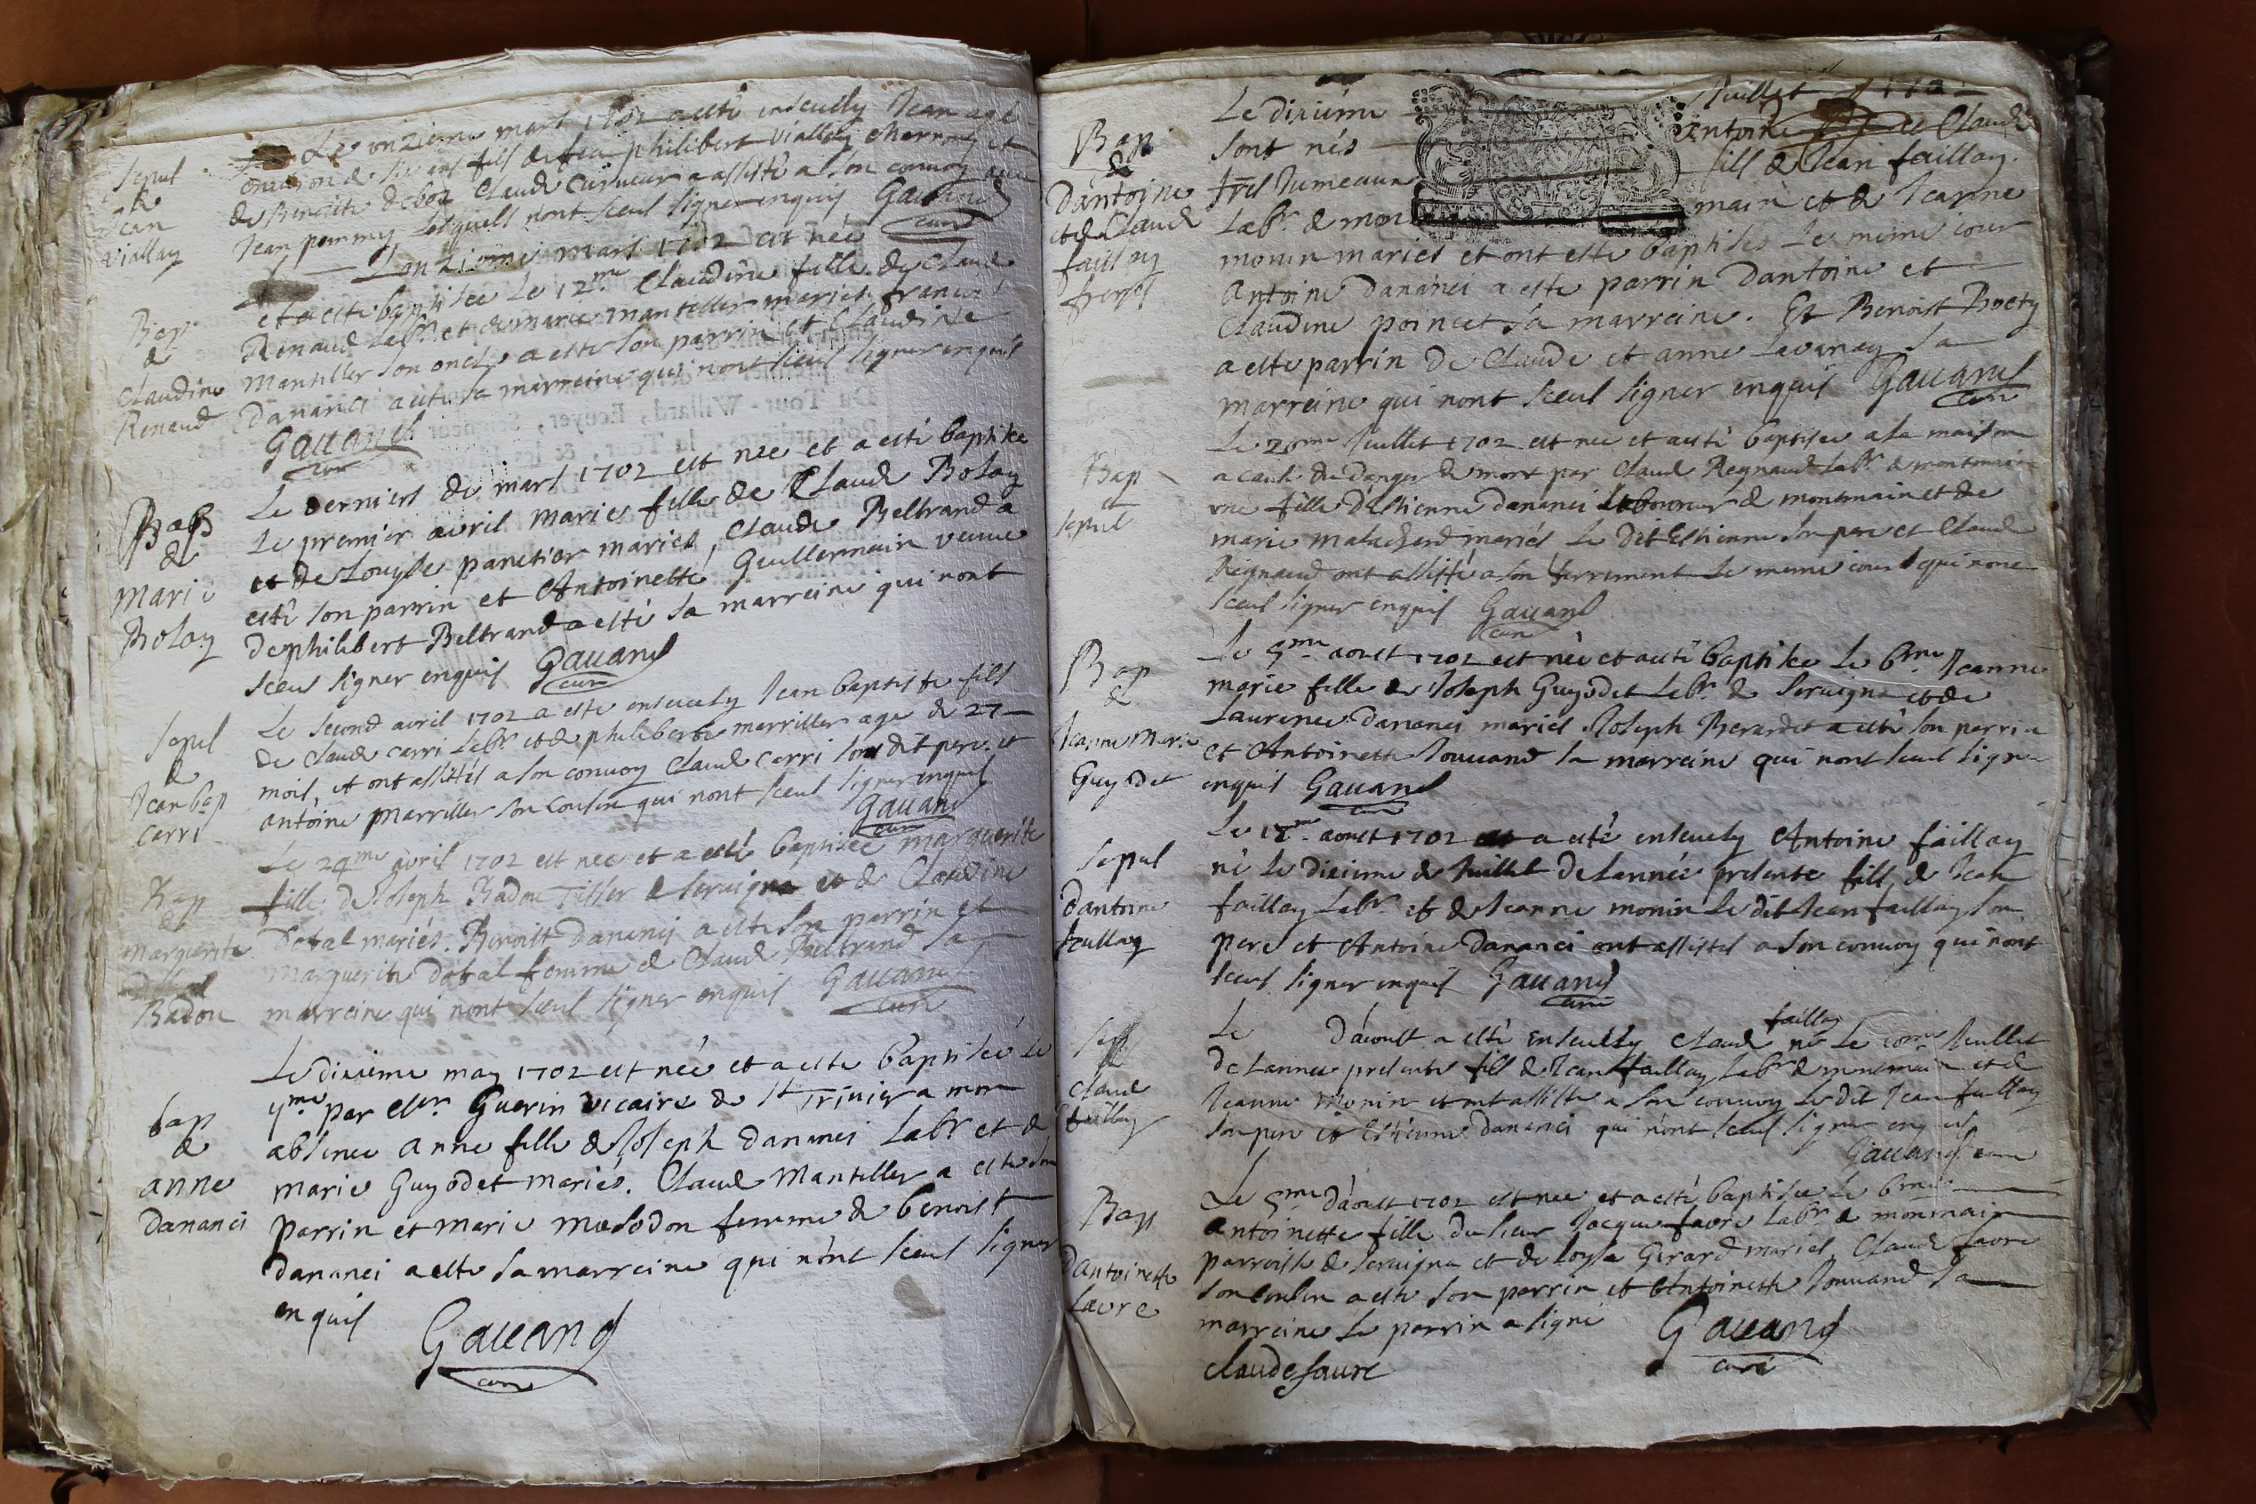 Sepul
de
Jean
Viallay
Le onzieme mars 1702 a esté enseuely Jean agé
environ de six ans fils de feu philibert Viallay charron et
de Benoite debox Claude Curneur a assisté a son convoy avec
Jean pommy lesquels n'ont sceul signer enquis Gauand
curé
L'onzieme mars 1702 est née
Bap
de
Claudine
Renaud
et a esté baptisée le 12me Claudine fille de Claude
Renaud labr et de marie mantellier mariés françois
Mantiller son oncle a esté son parrin et Claudine
Dananci a esté sa marreine qui n'ont sceul signer enquis
Gauand
cure
Bap
de
Marie
Bolay
Le derniers de mars 1702 est née et a esté baptisée
Le premier avril Maries fille de Claude Bolay
et de Louyse panetier mariés, Claude Beltrand a
esté son parrin et Antoinette Guillermain veuue
de philibert Beltrand a esté sa marreine qui n'ont
sceul signer enquis Gauand
cure
Sepul
de
Jean bap
Carri
Le second avril 1702 a esté enseuely Jean baptiste fils
de Claude Carri labr et de philiberte merriller age de 27
mois, et ont assistés a son convoy Claude Carri son dit pere et
antoine Marriller son cousin qui n'ont sceul signer enquis
Gauand
cure
Bap
de
Marguerite
Badou
Le 24me avril 1702 est née et a esté baptisée marguerite
fille de Joseph Badou Tissier de seruigna et de Claudine
Dotal mariés. Benoist Dananci a esté son parrin et
Marguerite dotal femme de Claude Beltrand sa
marreine qui n'ont sceul signer enquis Gauand
cure
bap
de
anne
dananci
Le dixiéme may 1702 est née et a esté baptisée le
par Guerin vicaire de St Trinier a mon
absence anne fille de Joseph dananci labr et de
marie Guyodet mariés. Claude Mantiller a esté son
parrin et marie molodon femme de benoist
dananci a esté sa marreine qui n'ont sceul signer
enquis
Gauand
cure
Bap
de
d'antoine
et de Claude
faillay
freres
Le dixiéme Juillet 1702
sont nés Antoine et Claude
freres Jumeaux fils de Jean faillay
labr de monmain et de Jeanne
monin mariés et ont esté baptisés le meme iour
Antoine Dananci a esté parrin d'antoine et
Claudine poincet sa marreine. Et Benoist Boety
a esté parrin de Claude et anne Lauenay sa
marreine qui n'ont sceul signer enquis Gauand
cure
Bap
et
sepul
Le 20me Juillet 1702 est née et a esté baptisée a la maison
a cause du danger de mort par Claude Regnaud labr de montmain
une fille d'Estienne dananci laboureur de monmain et de
marie malachard mariés le dit Estienne son pere et Claude
Regnaud ont assisté a son enterrement le meme iour qui n'ont
sceul signer enquis Gauand
cure
Bap
de
Jeanne Marie
Guyodet
Le 5me aoust 1702 est née et a esté baptisée le 6me Jeanne
marie fille de Joseph Guyodet labr de seruigna et de
Laurence dananci mariés. Joseph Berardet a esté son parrin
et Antoinette Jouuand sa marreine qui n'ont sceul signer
enquis Gauand
cure
Sepul
d'antoine
faillay
Le aoust 1702 a esté enseuely Antoine faillay
né le dixieme de Juillet de l'année presente fils de Jean
faillay labr et de Jeanne monin le dit Jean faillay son
pere et Antoine Dananci ont assistes a son convoy qui n'ont
sceul signer enquis Gauand
cure
Sep
Claude
faillay
faillay
Le d'aoust a esté enseuely Claude né le 10me Juillet
de l'année presente fils de Jean faillay labr de monmain et de
Jeanne Monin et ont assisté a son convoy le dit Jean faillay
son pere et Estienne Dananci qui n'ont sceul signer enquis
Gauand cure
Bap
d'antoinette
faure
Le 5me d'aoust 1702 est née et a esté baptisée le 6me
antoinette fille du sieur Jacque faure labr de monmain
parroisse de seruigna et de loyse Girard mariés, Claude faure
son cousin a esté son parrin et Antoinette Jouuand sa
marreine le parrin a signé Gauand
claude faure
curé